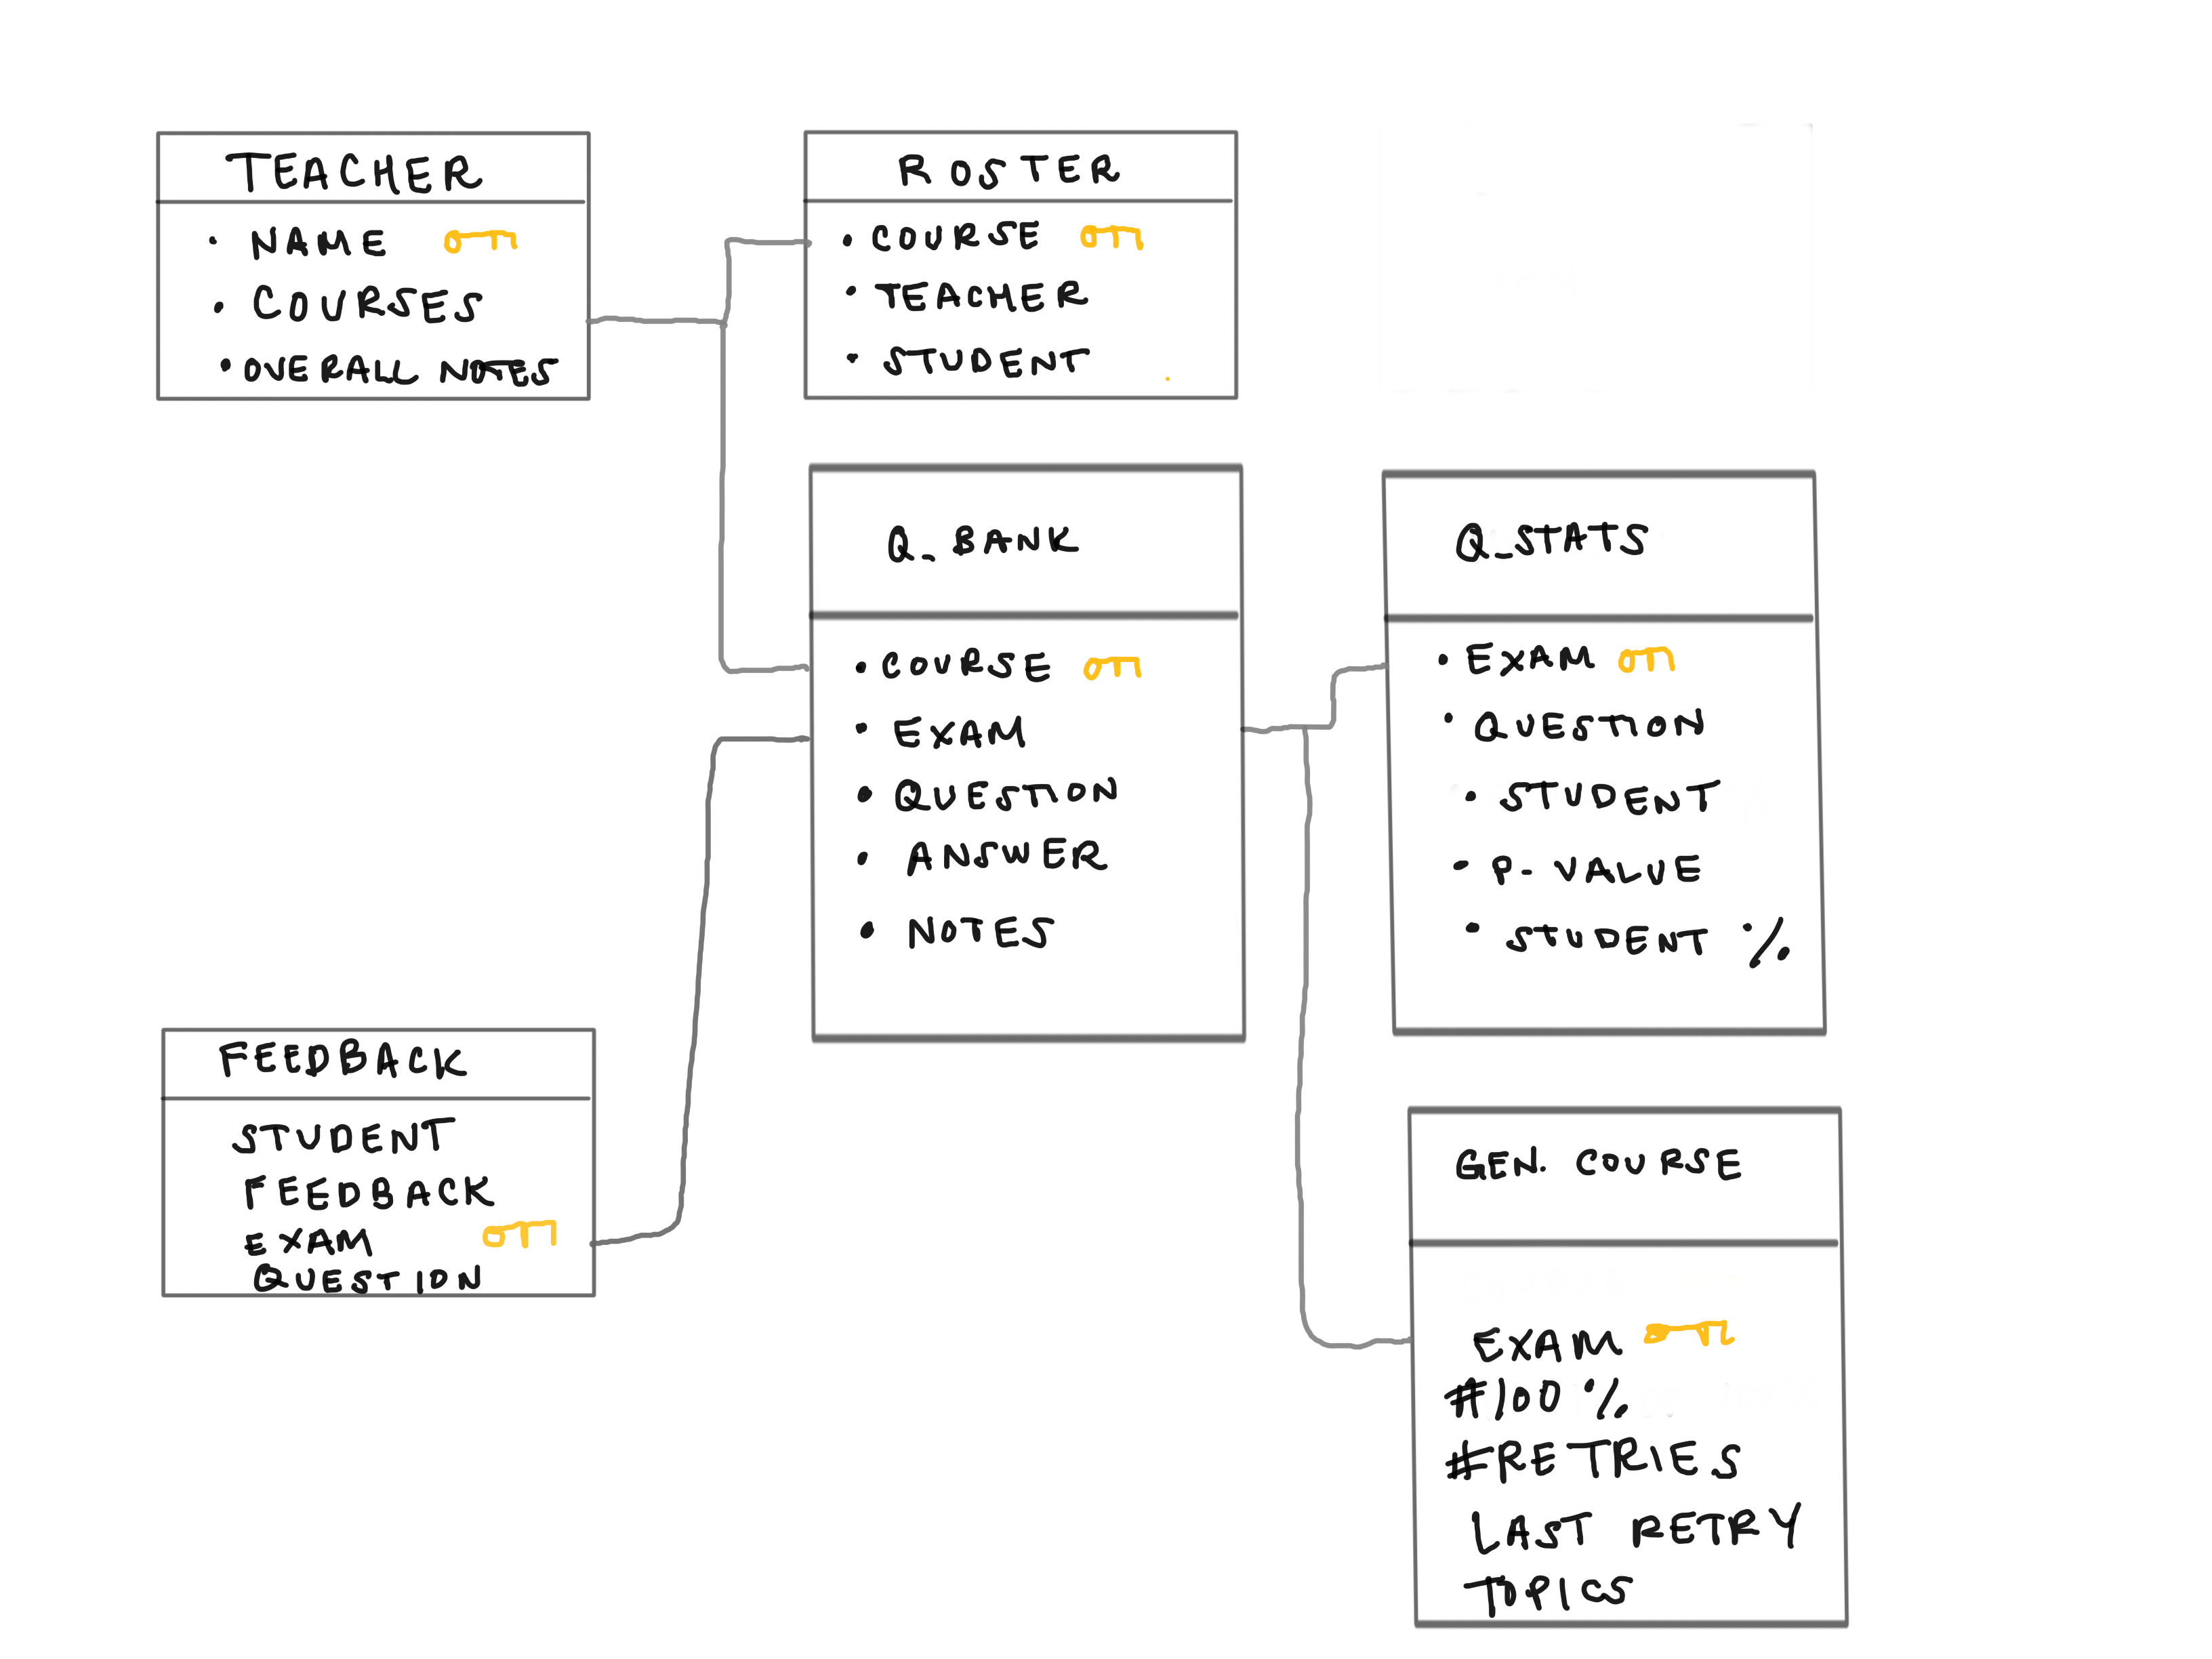 TEACHER
• NAME
• COURSES
• OVERALL NOTES
ROSTER
• COURSE
• TEACHER
• STUDENT
Q_BANK
• COURSE
• EXAM
• QUESTION
• ANSWER
• NOTES
Q_STATS
• EXAM
• QUESTION
• STUDENT
• P-VALUE
• STUDENT %
FEEDBACK
STUDENT
FEEDBACK
EXAM
QUESTION
GEN. COURSE
EXAM
#100%
#RETRIES
LAST RETRY
TOPICS